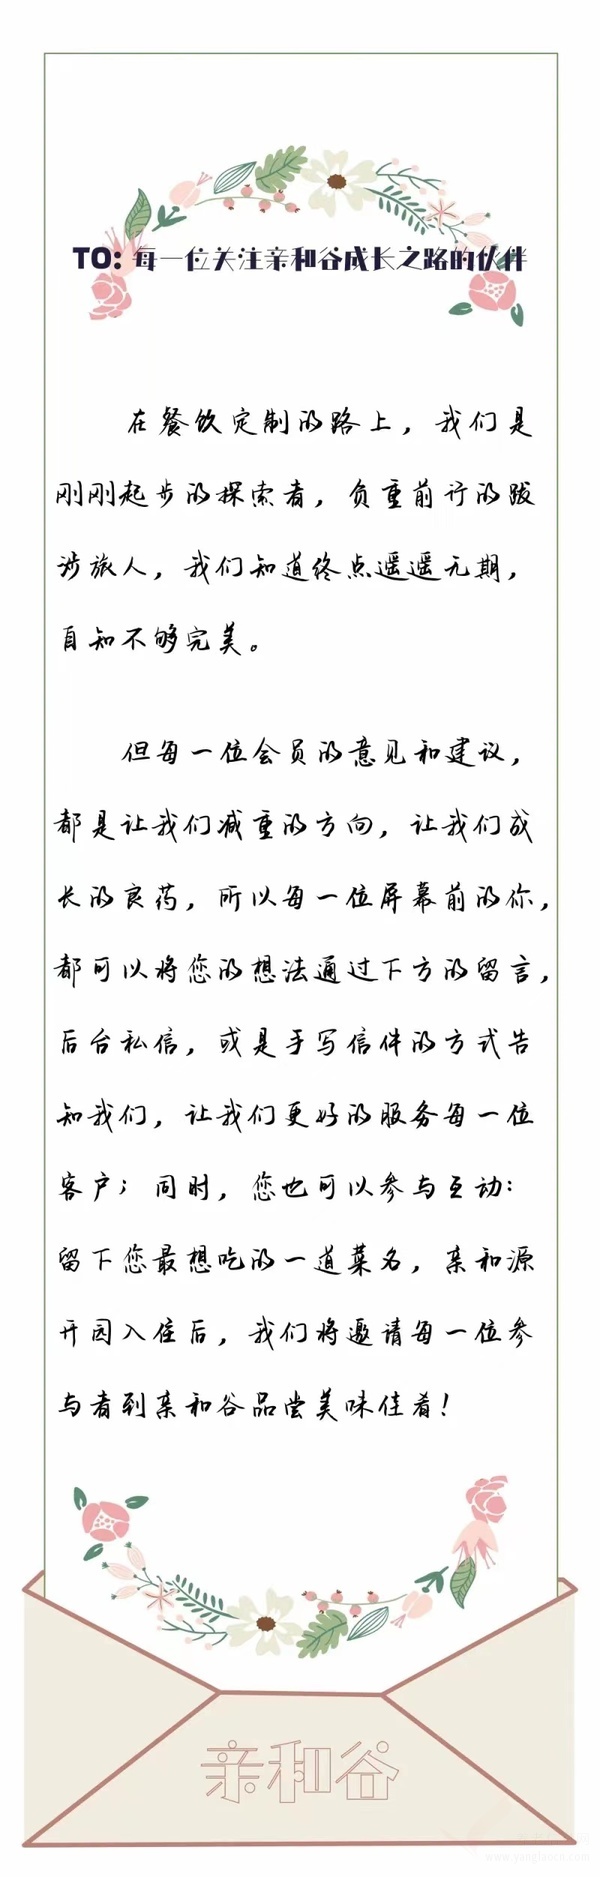 TO: 每一位关注亲和谷成长之路的伙伴
在餐饮定制的路上，我们是
刚刚起步的探索者，负重前行的跋
涉旅人，我们知道终点遥遥无期，
自知不够完美。
但每一位会员的意见和建议，
都是让我们减重的方向，让我们成
长的良药，所以每一位屏幕前的你，
都可以将您的想法通过下方的留言，
后台私信，或是手写信件的方式告
知我们，让我们更好的服务每一位
客户；同时，您也可以参与互动：
留下您最想吃的一道菜名，亲和源
开园入住后，我们将邀请每一位参
与者到亲和谷品尝美味佳肴！
亲和谷